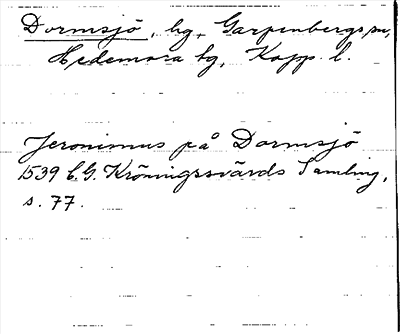 Dormsjö, hg, Garpenbergs sn,
Hedemora tg, Kopp. l.
Jeronimus på Dormsjö
1539 C.G. Kröningssvärds Samling,
s. 77.